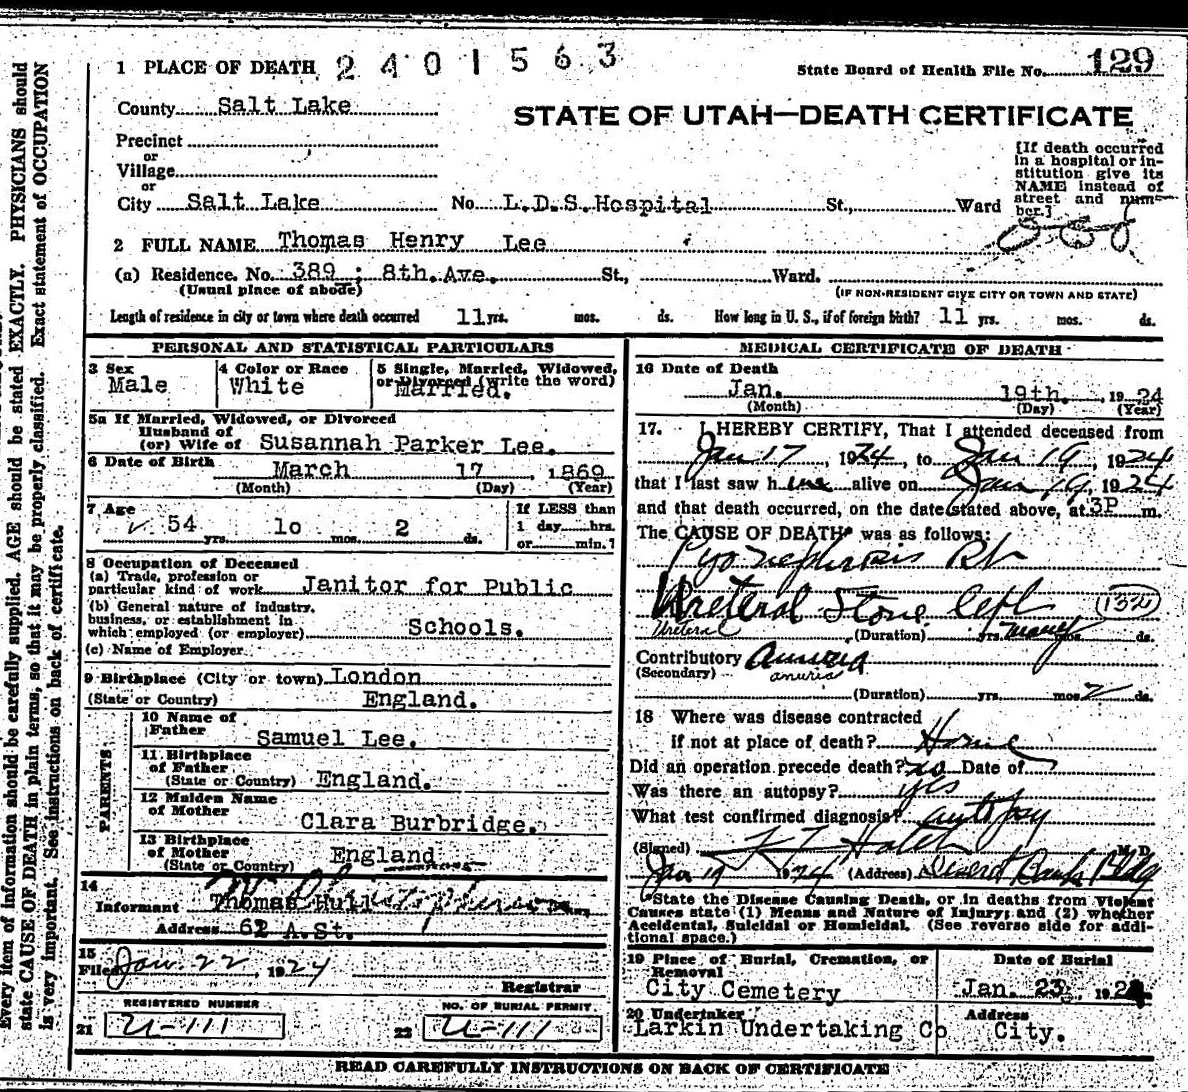 1 PLACE OF DEATH 2401563
State Board of Health File No. 129
County Salt Lake
STATE OF UTAH—DEATH CERTIFICATE
Precinct
or
Village
or
City Salt Lake No. L.D.S. Hospital St., Ward
[If death occurred in a hospital or institution give its NAME instead of street and number.]
2 FULL NAME Thomas Henry Lee
(a) Residence. No. 389 ; 8th. Ave. St., Ward.
(Usual place of abode)
(IF NON-RESIDENT GIVE CITY OR TOWN AND STATE)
Length of residence in city or town where death occurred 11 yrs. mos. ds. How long in U. S., if of foreign birth? 11 yrs. mos. ds.
PERSONAL AND STATISTICAL PARTICULARS
3 Sex
Male
4 Color or Race
White
5 Single, Married, Widowed, or Divorced (write the word)
Married.
5a If Married, Widowed, or Divorced
Husband of
(or) Wife of Susannah Parker Lee.
6 Date of Birth March 17 1869
(Month) (Day) (Year)
7 Age
54 yrs. 10 mos. 2 ds.
If LESS than
1 day hrs.
or min.?
8 Occupation of Deceased
(a) Trade, profession or
particular kind of work Janitor for Public
(b) General nature of industry,
business, or establishment in
which employed (or employer) Schools.
(c) Name of Employer
9 Birthplace (City or town) London
(State or Country) England.
PARENTS
10 Name of
Father Samuel Lee.
11 Birthplace
of Father
(State or Country) England.
12 Maiden Name
of Mother
Clara Burbridge.
13 Birthplace
of Mother
(State or Country) England
14
Informant Thomas Hull
Address 62 A. St.
15
Filed Jan. 22, 1924
Registrar
REGISTERED NUMBER
21 U-111
NO. OF BURIAL PERMIT
22 U-111
MEDICAL CERTIFICATE OF DEATH
16 Date of Death
Jan. 19th. , 1924
(Month) (Day) (Year)
17. I HEREBY CERTIFY, That I attended deceased from
Jan 17, 1924, to Jan 19, 1924
that I last saw him alive on Jan 19, 1924
and that death occurred, on the date stated above, at 3P m.
The CAUSE OF DEATH* was as follows:
Pyonephrosis Rt
Ureteral Stone left 132
Ureteral (Duration) yrs. many mos. ds.
Contributory anuria
(Secondary) anuria
(Duration) yrs. mos. 2 ds.
18 Where was disease contracted
if not at place of death? Home
Did an operation precede death? no Date of
Was there an autopsy? yes
What test confirmed diagnosis? autopsy
(Signed) M. D.
Jan 19 1924 (Address) Deseret Bank Bldg
*State the Disease Causing Death, or in deaths from Violent
Causes state (1) Means and Nature of Injury; and (2) whether
Accidental, Suicidal or Homicidal. (See reverse side for addi-
tional space.)
19 Place of Burial, Cremation, or
Removal
City Cemetery
Date of Burial
Jan. 23, 1924
20 Undertaker
Larkin Undertaking Co
Address
City.
READ CAREFULLY INSTRUCTIONS ON BACK OF CERTIFICATE
Every item of information should be carefully supplied. AGE should be stated EXACTLY. PHYSICIANS should
state CAUSE OF DEATH in plain terms, so that it may be properly classified. Exact statement of OCCUPATION
is very important. See instructions on back of certificate.